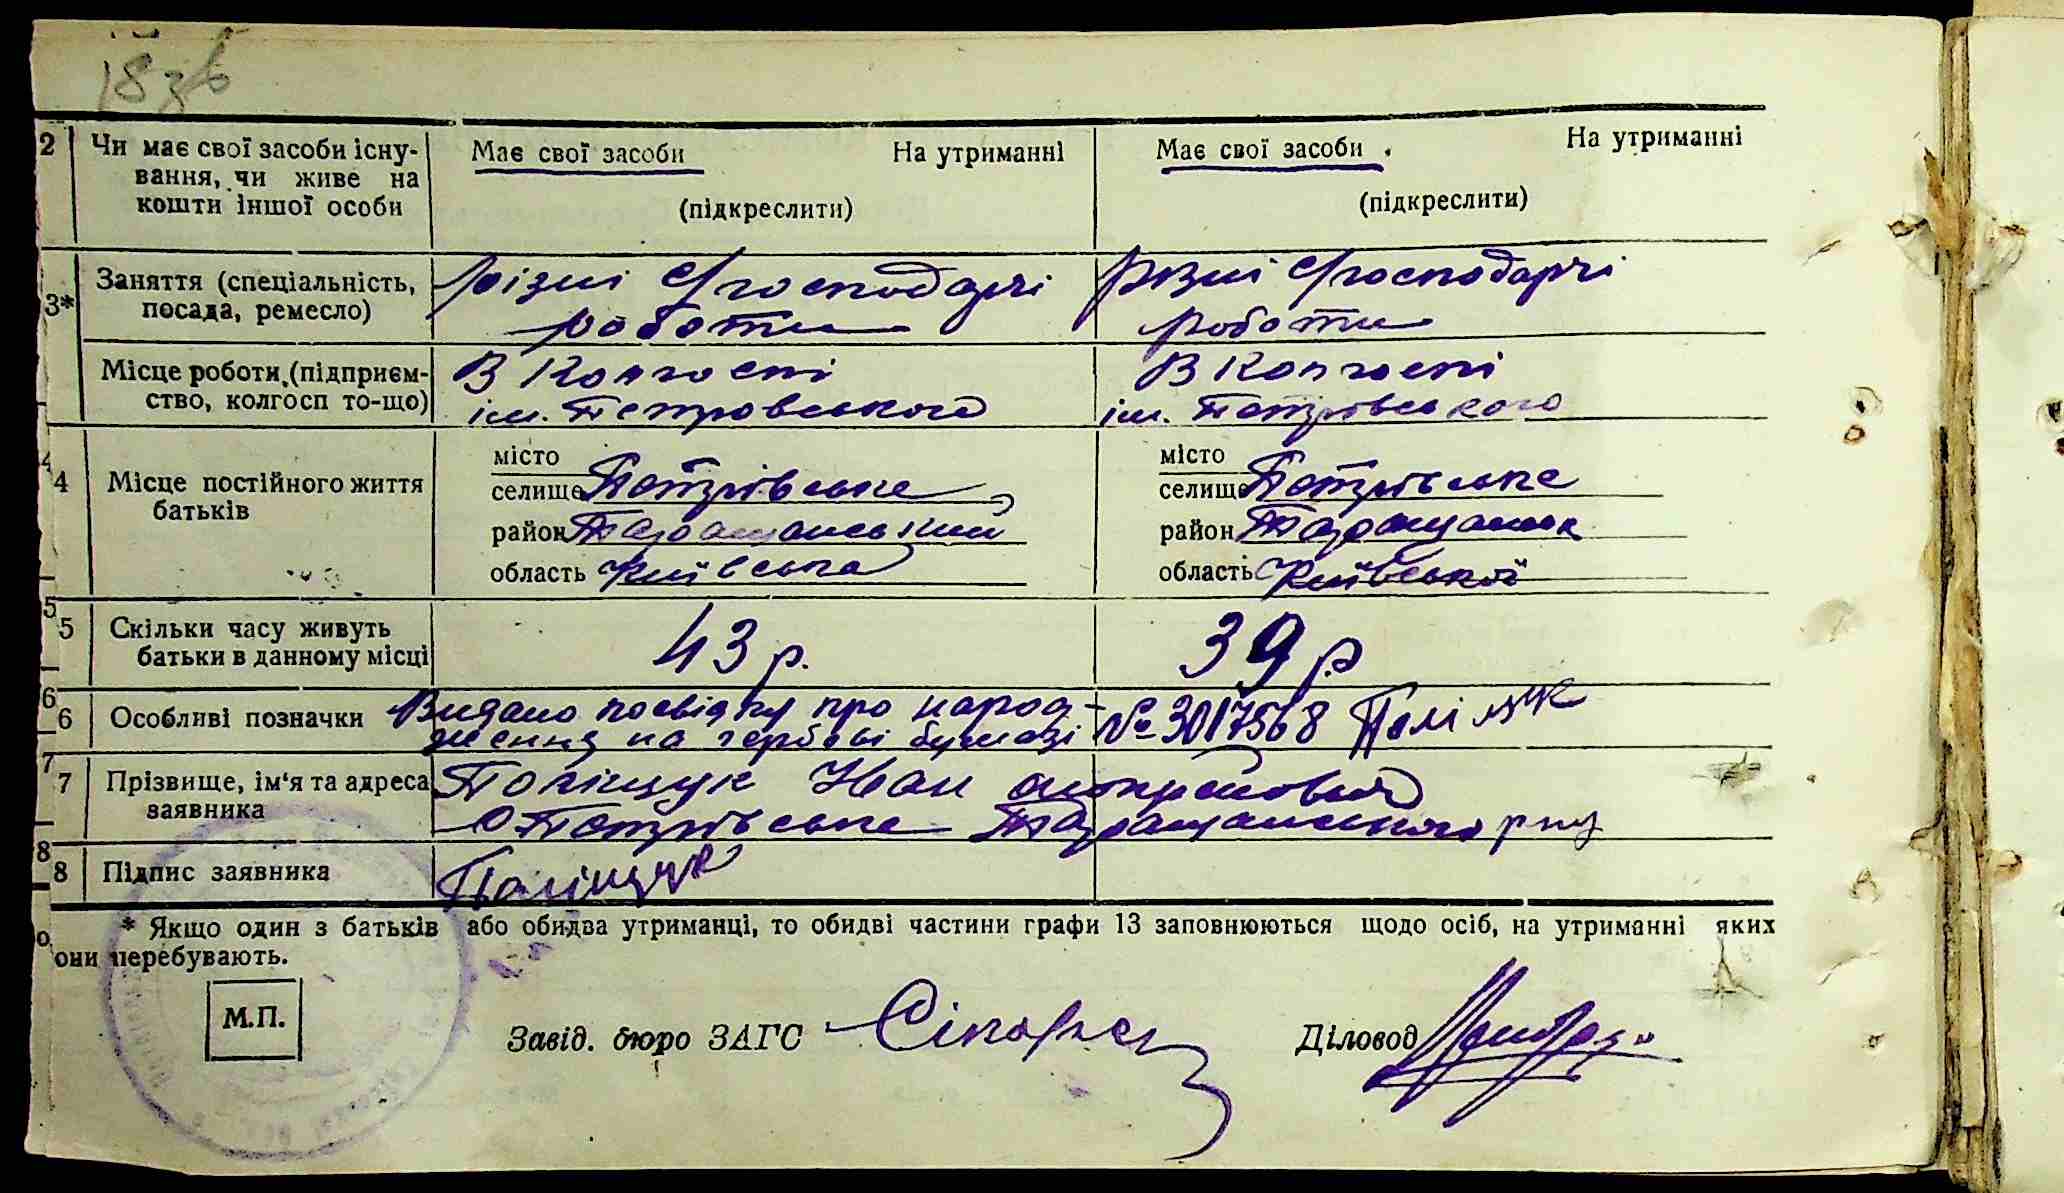 18 зв
2 Чи має свої засоби існу- Має свої засоби На утриманні Має свої засоби . На утриманні
вання, чи живе на
кошти іншої особи (підкреслити) (підкреслити)
3* Заняття (спеціальність, різні с/господарчі різні с/господарчі
посада, ремесло) роботи роботи
Місце роботи (підприєм- В колгоспі В колгоспі
ство, колгосп то-що) ім. Петровського ім. Петрівського
місто місто
4 4 Місце постійного життя селище Петрівське селище Петрівське
батьків район Таращанський район Таращанськ
область Київська область Київської
5 5 Скільки часу живуть 43 р. 39 р
батьки в данному місці
6 6 Особливі позначки Видано посвідку про народ- № 3017568 Поліщук
ження на гербові бумазі
7 7 Прізвище, ім'я та адреса Поліщук Іван
заявника с Петрівське Таращанського р ну
8 8 Підпис заявника Поліщук
* Якщо один з батьків або обидва утриманці, то обидві частини графи 13 заповнюються щодо осіб, на утриманні яких
они перебувають.
М.П.
Завід. бюро ЗАГС Діловод